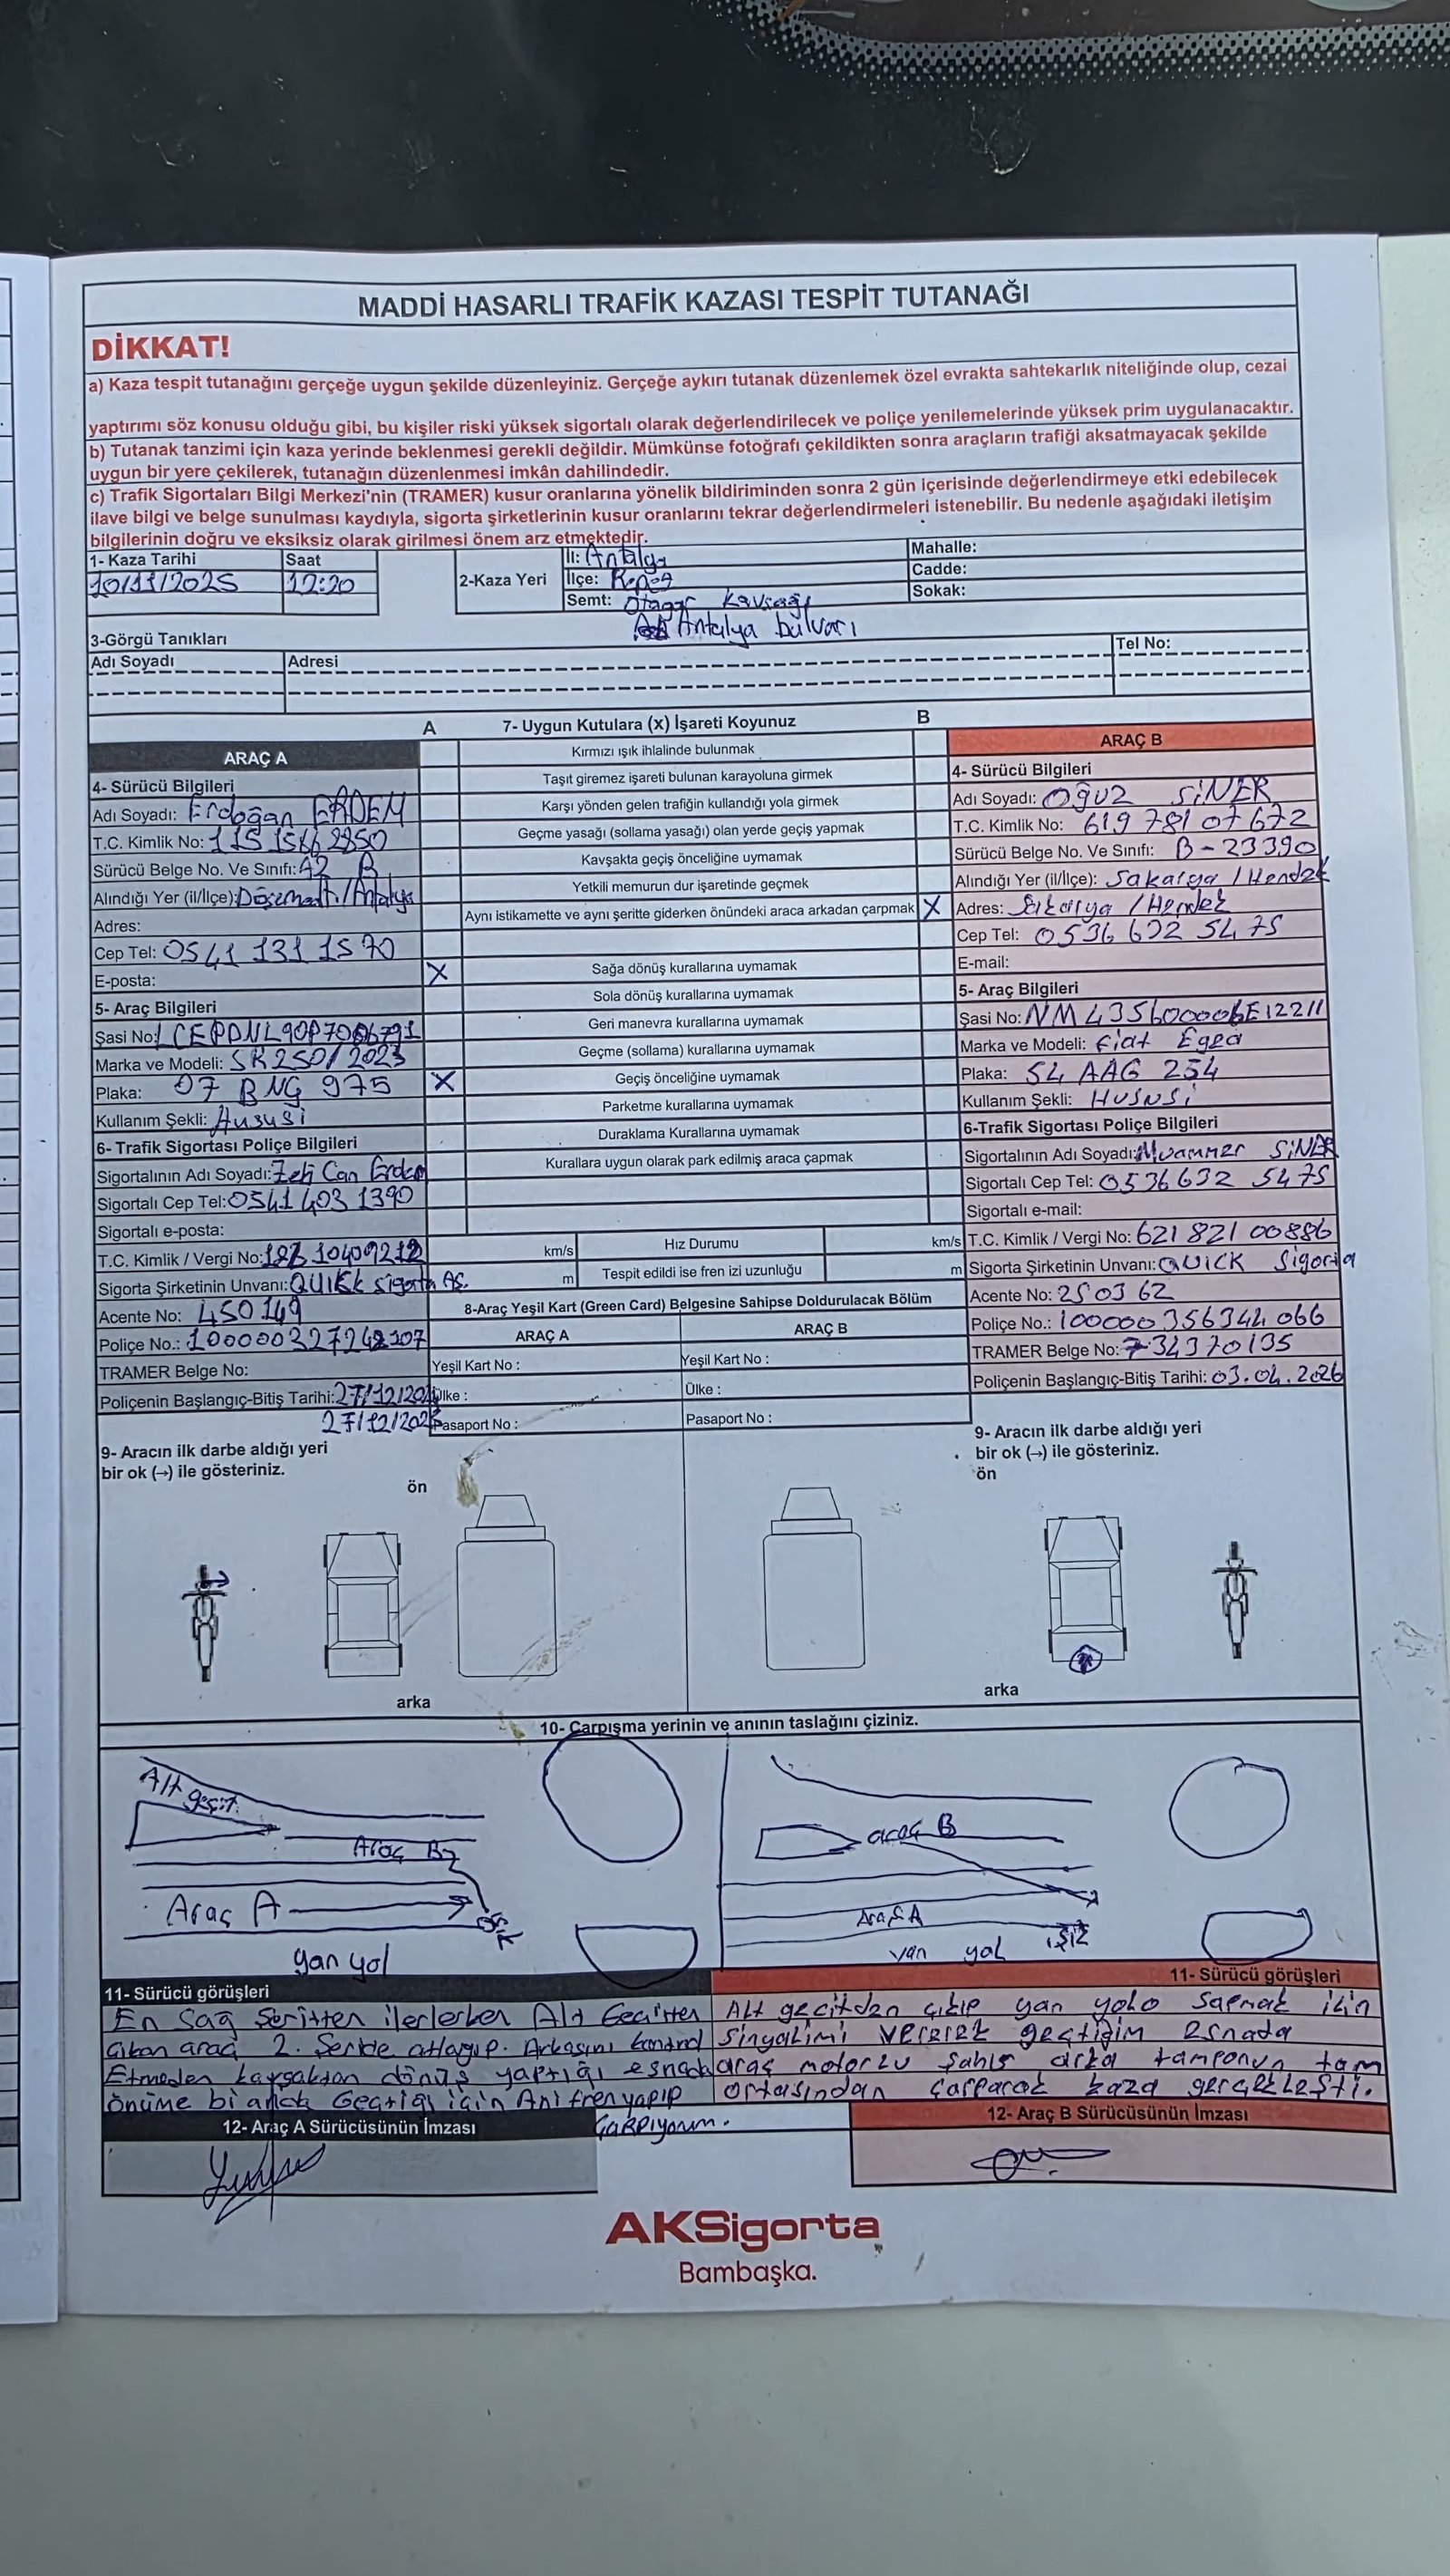 MADDİ HASARLI TRAFİK KAZASI TESPİT TUTANAĞI
DİKKAT!
a) Kaza tespit tutanağını gerçeğe uygun şekilde düzenleyiniz. Gerçeğe aykırı tutanak düzenlemek özel evrakta sahtekarlık niteliğinde olup, cezai
yaptırımı söz konusu olduğu gibi, bu kişiler riski yüksek sigortalı olarak değerlendirilecek ve poliçe yenilemelerinde yüksek prim uygulanacaktır.
b) Tutanak tanzimi için kaza yerinde beklenmesi gerekli değildir. Mümkünse fotoğrafı çekildikten sonra araçların trafiği aksatmayacak şekilde
uygun bir yere çekilerek, tutanağın düzenlenmesi imkân dahilindedir.
c) Trafik Sigortaları Bilgi Merkezi'nin (TRAMER) kusur oranlarına yönelik bildiriminden sonra 2 gün içerisinde değerlendirmeye etki edebilecek
ilave bilgi ve belge sunulması kaydıyla, sigorta şirketlerinin kusur oranlarını tekrar değerlendirmeleri istenebilir. Bu nedenle aşağıdaki iletişim
bilgilerinin doğru ve eksiksiz olarak girilmesi önem arz etmektedir.
1- Kaza Tarihi
10/11/2025
Saat
12:20
2-Kaza Yeri
İl: Antalya
İlçe: Kepez
Semt: Otogar Kavşağı
Antalya bulvarı
Mahalle:
Cadde:
Sokak:
3-Görgü Tanıkları
Adı Soyadı
Adresi
Tel No:
ARAÇ A
4- Sürücü Bilgileri
Adı Soyadı: Erdoğan ERDEM
T.C. Kimlik No:
Sürücü Belge No. Ve Sınıfı: A2 B
Alındığı Yer (il/İlçe): Döşemealtı/Antalya
Adres:
Cep Tel: 0541 131 1570
E-posta:
5- Araç Bilgileri
Şasi No:
Marka ve Modeli: SK250/2023
Plaka: 07 BNG 975
Kullanım Şekli: Hususi
6- Trafik Sigortası Poliçe Bilgileri
Sigortalının Adı Soyadı: Can Erdem
Sigortalı Cep Tel: 0541 403 1390
Sigortalı e-posta:
T.C. Kimlik / Vergi No:
Sigorta Şirketinin Unvanı: QUICK Sigorta AŞ.
Acente No: 450149
Poliçe No.:
TRAMER Belge No:
Poliçenin Başlangıç-Bitiş Tarihi: 27/12/202
27/12/202
A
7- Uygun Kutulara (x) İşareti Koyunuz
B
Kırmızı ışık ihlalinde bulunmak
Taşıt giremez işareti bulunan karayoluna girmek
Karşı yönden gelen trafiğin kullandığı yola girmek
Geçme yasağı (sollama yasağı) olan yerde geçiş yapmak
Kavşakta geçiş önceliğine uymamak
Yetkili memurun dur işaretinde geçmek
Aynı istikamette ve aynı şeritte giderken önündeki araca arkadan çarpmak X
X Sağa dönüş kurallarına uymamak
Sola dönüş kurallarına uymamak
Geri manevra kurallarına uymamak
Geçme (sollama) kurallarına uymamak
X Geçiş önceliğine uymamak
Parketme kurallarına uymamak
Duraklama Kurallarına uymamak
Kurallara uygun olarak park edilmiş araca çapmak
km/s Hız Durumu km/s
m Tespit edildi ise fren izi uzunluğu m
8-Araç Yeşil Kart (Green Card) Belgesine Sahipse Doldurulacak Bölüm
ARAÇ A
Yeşil Kart No :
Ülke :
Pasaport No :
ARAÇ B
Yeşil Kart No :
Ülke :
Pasaport No :
ARAÇ B
4- Sürücü Bilgileri
Adı Soyadı: OĞUZ SİNER
T.C. Kimlik No: 619 781 07672
Sürücü Belge No. Ve Sınıfı: B - 23390
Alındığı Yer (il/İlçe): Sakarya / Hendek
Adres: Sakarya / Hendek
Cep Tel: 0536 632 54 75
E-mail:
5- Araç Bilgileri
Şasi No: NM435600006E12211
Marka ve Modeli: Fiat Egea
Plaka: 54 AAG 254
Kullanım Şekli: HUSNSİ
6-Trafik Sigortası Poliçe Bilgileri
Sigortalının Adı Soyadı: Muammer SİNER
Sigortalı Cep Tel: 0536632 5475
Sigortalı e-mail:
T.C. Kimlik / Vergi No: 621 821 00886
Sigorta Şirketinin Unvanı: QUICK Sigorta
Acente No: 250362
Poliçe No.: 100000 356344 066
TRAMER Belge No: 734370135
Poliçenin Başlangıç-Bitiş Tarihi: 03.04.2026
9- Aracın ilk darbe aldığı yeri
bir ok (→) ile gösteriniz.
ön
arka
9- Aracın ilk darbe aldığı yeri
bir ok (→) ile gösteriniz.
ön
arka
10- Çarpışma yerinin ve anının taslağını çiziniz.
Alt geçit
Araç B
Araç A
yan yol
araç B
Araç A
yan yol
11- Sürücü görüşleri
En Sağ Şeritten ilerlerken Alt Geçitten
Çıkan araç 2. Şeride atlayıp. Arkasını kontrol
Etmeden kavşaktan dönüş yaptığı esnada
önüme bi anda Geçtiği için Ani fren yapıp
Çarpıyorum.
11- Sürücü görüşleri
Alt geçitden çıkıp yan yola sapmak için
Sinyalimi vererek geçtiğim esnada
araç motorlu şahıs arka tamponun tam
ortasından çarparak kaza gerçekleşti.
12- Araç A Sürücüsünün İmzası
12- Araç B Sürücüsünün İmzası
AKSigorta
Bambaşka.